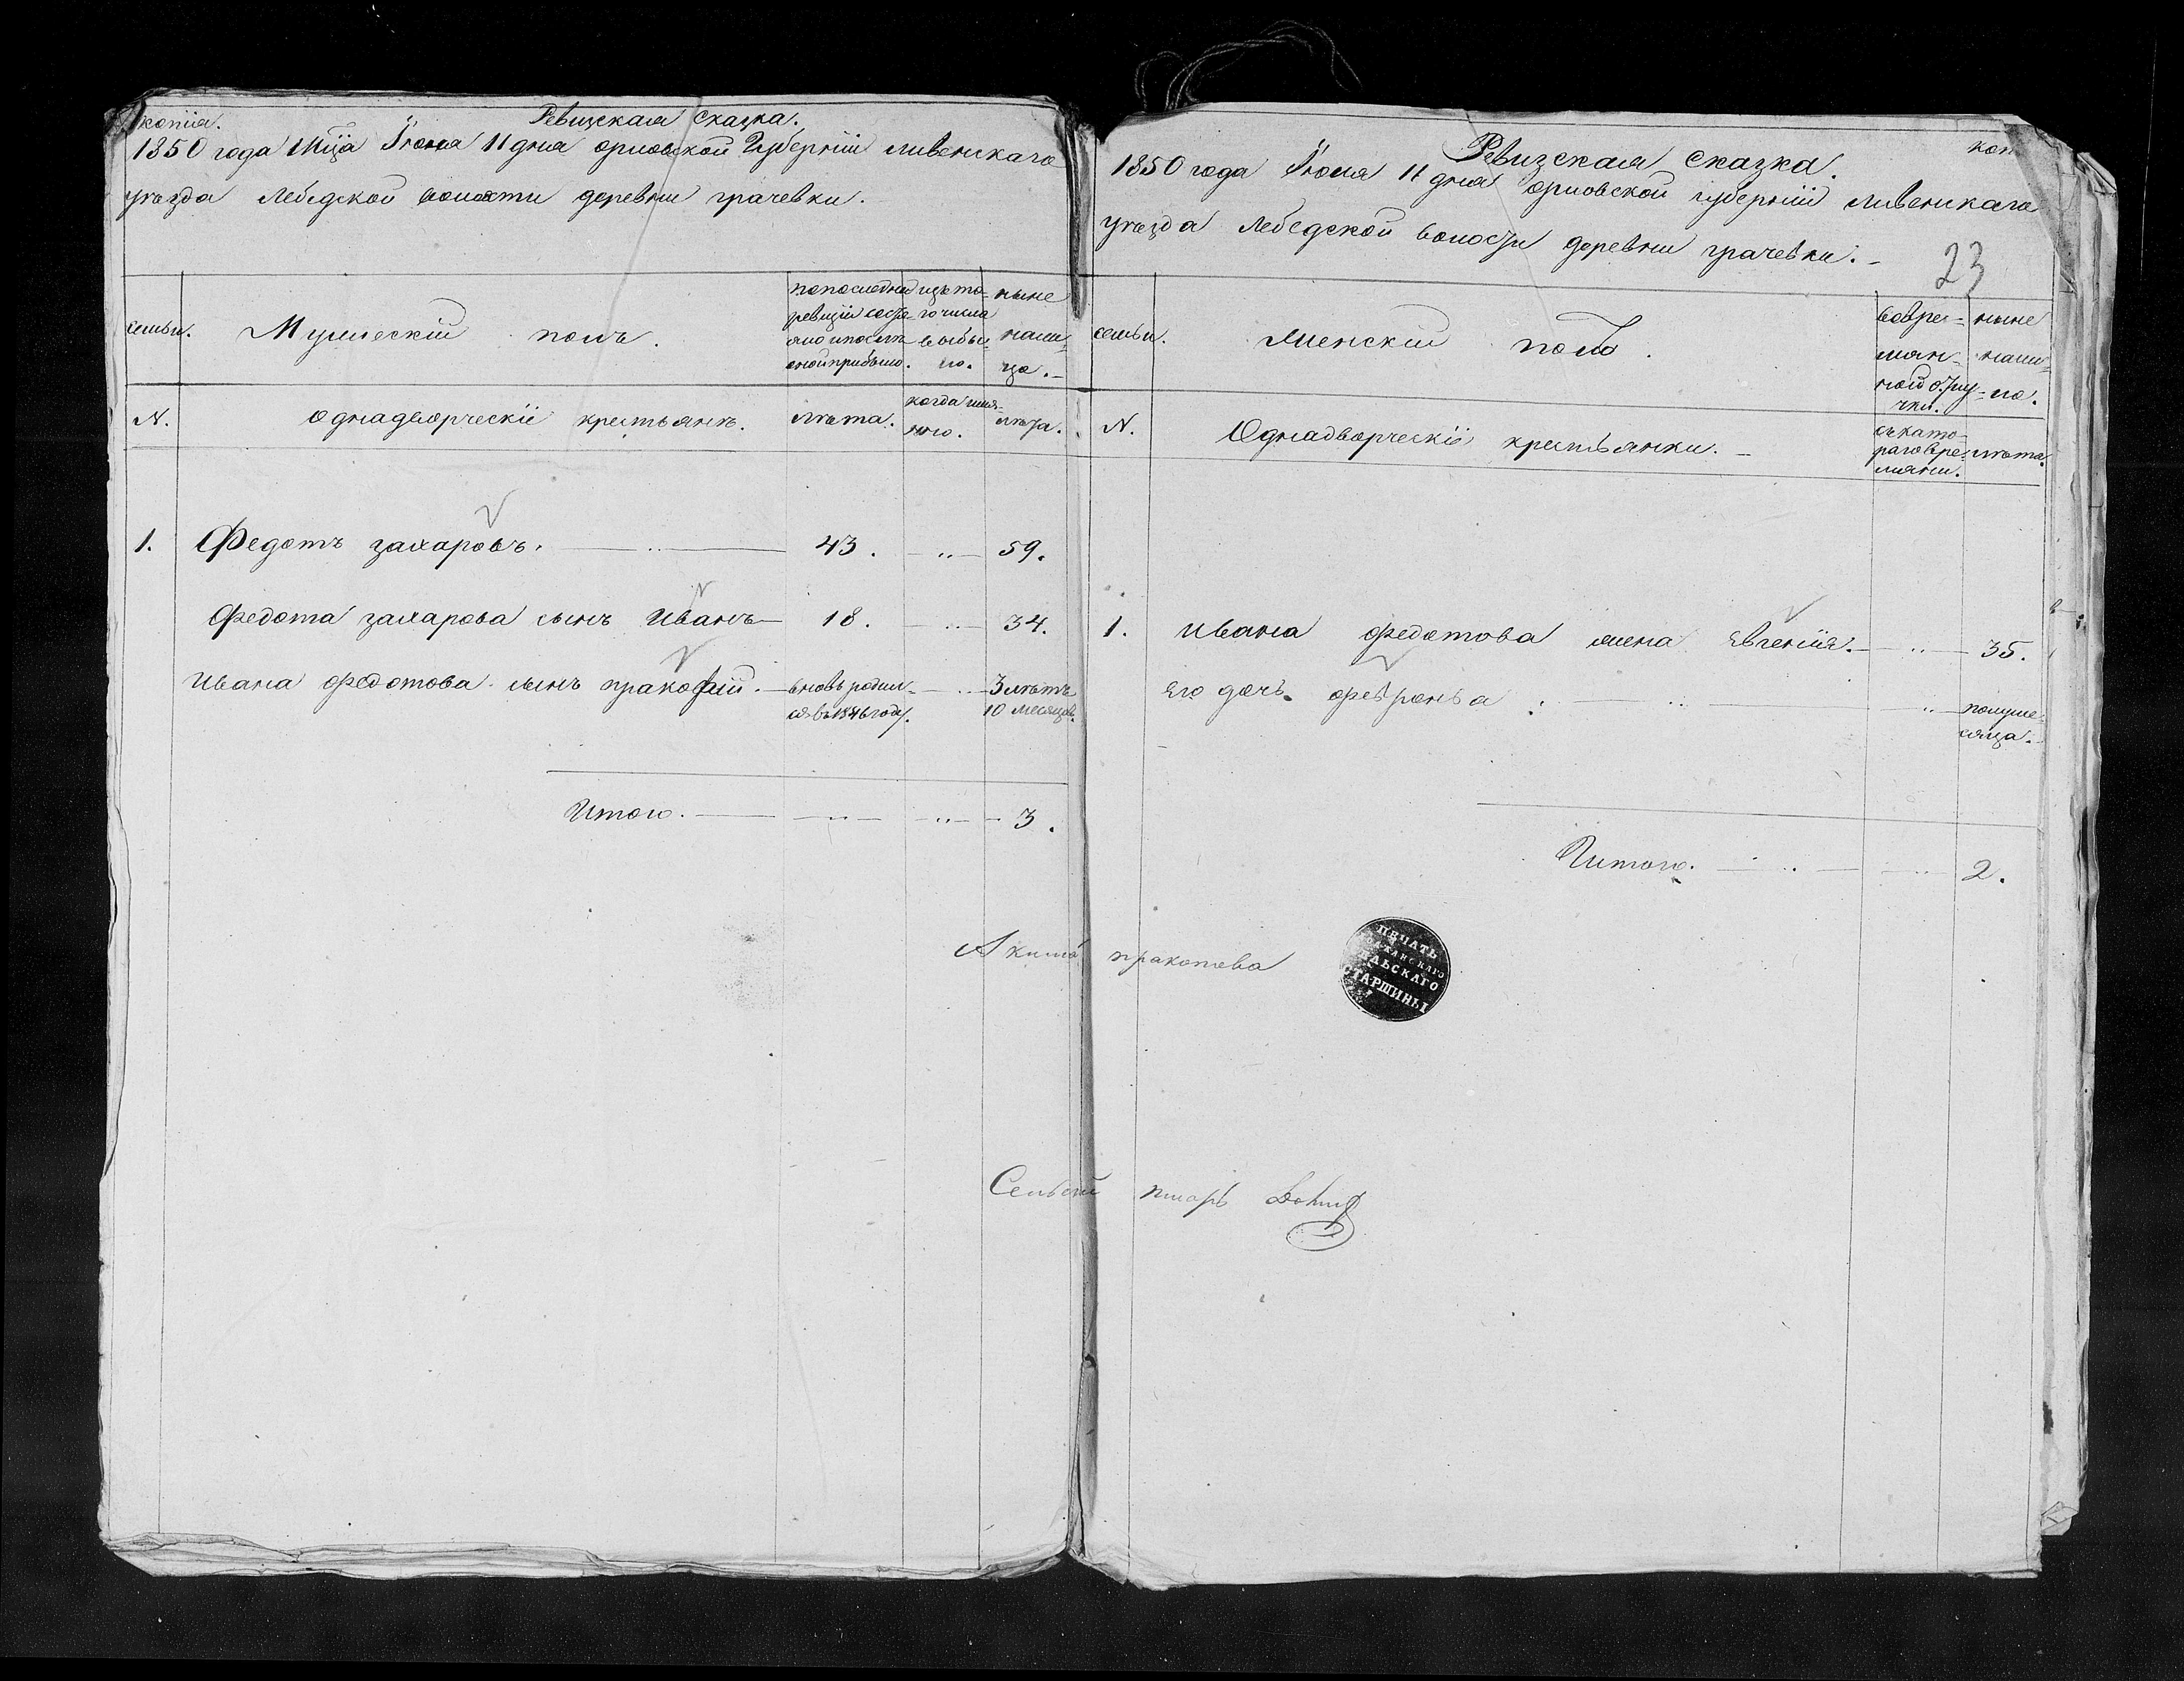 копiя.
Ревизская сказка.
1850 года Мца Iюня 11 дня орловской Губернiи ливенскаго
уезда Лебедской волости деревни грачевки.
семьи. Мужескiй полъ.
попоследней ревизiи состо-яло ипосле оной прибыло.
изъ то-го числа выбы-ло.
ныне нали-цо.
N. однадворческiи крестьянъ. лета. когда имя-нно. лета.
1. Федотъ захаровъ. 43. 59.
Федота захарова сынъ Иванъ 18. 34.
Ивана федотова сынъ пракофiй. вновь родил-ся въ 1846 году. 3 летъ 10 месяцов.
Итого. 3.
Ревизская сказка.
коп
1850 года Iюня 11 дня орловской губернiи ливенскаго
уезда лебедской волости деревни грачевки.
23
семьи. женскiй полъ.
вовре-мян-ной отлу-чки.
ныне нали-цо.
N. Однадворческiе крестьянки. съ като-раго вре-мяни. лета.
1. ивана федотова жена Евгения. 35.
Его дочь февронья полуме-сяца.
Итого. 2.
Акима пракопова
ПЕЧАТЬ
СТАРШИНЫ
писарь